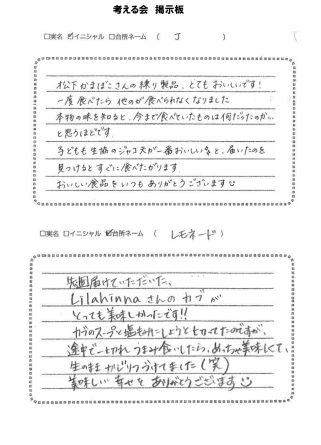 考える会 掲示板
□実名 ☑イニシャル □台所ネーム ( J )
松下かまぼこさんの練り製品、とてもおいしいです!
一度食べたら 他のが食べられなくなりました
本物の味を知ると、今まで食べていたものは何だったのか…
と思うほどです.
子どもも生協のジャコ天が一番おいしい と、届いたのを
見つけると すぐに食べたがります
おいしい食品を いつも ありがとうございます☺
□実名 □イニシャル ☑台所ネーム ( レモネード )
先週届けていただいた、
Lilahinnaさんの カブ が
とっても美味しかったです!!
カブのスープと塩もみにしようと切ってたのですが、
途中で一切れ つまみ食いしたら、めっちゃ美味しくて、
生のまま かじりつづけてました(笑)
美味しい 幸せを ありがとうございます☺